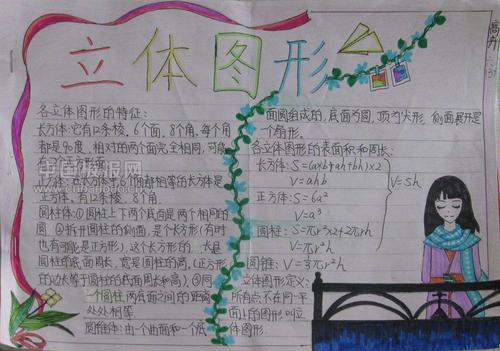 立体图形
各立体图形的特征:
长方体:它有12条棱,6个面,8个角,每个角
都是90度,相对的两个面完全相同,可能
有 个正方形面.
方体:在长方体中,6个面都相等的长方体是
正方体,有12条棱.8个角
圆柱体:①圆柱上下两个底面是两个相同的
圆.②拆开圆柱的侧面,是个长方形(有时
也有可能是正方形),这个长方形的 长是
圆柱的底面周长,宽是圆柱的高.(正方形
的边长等于圆柱的底面周长和高).③同
一个圆柱两底面之间的距离
处处相等
圆锥体:由一个曲面和一个底
面圆组成的,底面为圆,顶为尖形,侧面展开是
一个扇形.
各立体图形的表面积和周长:
长方体:S=(axb+ah+bh)x2
V=ahb
正方体:S=6a²
V=a³
圆柱:S=πr²x2+2πrh
V=πr²h
V=Sh.
圆锥:V=⅓πr²h
立体图形定义:
所有点不在同一平
面上的图形叫立
体图形.